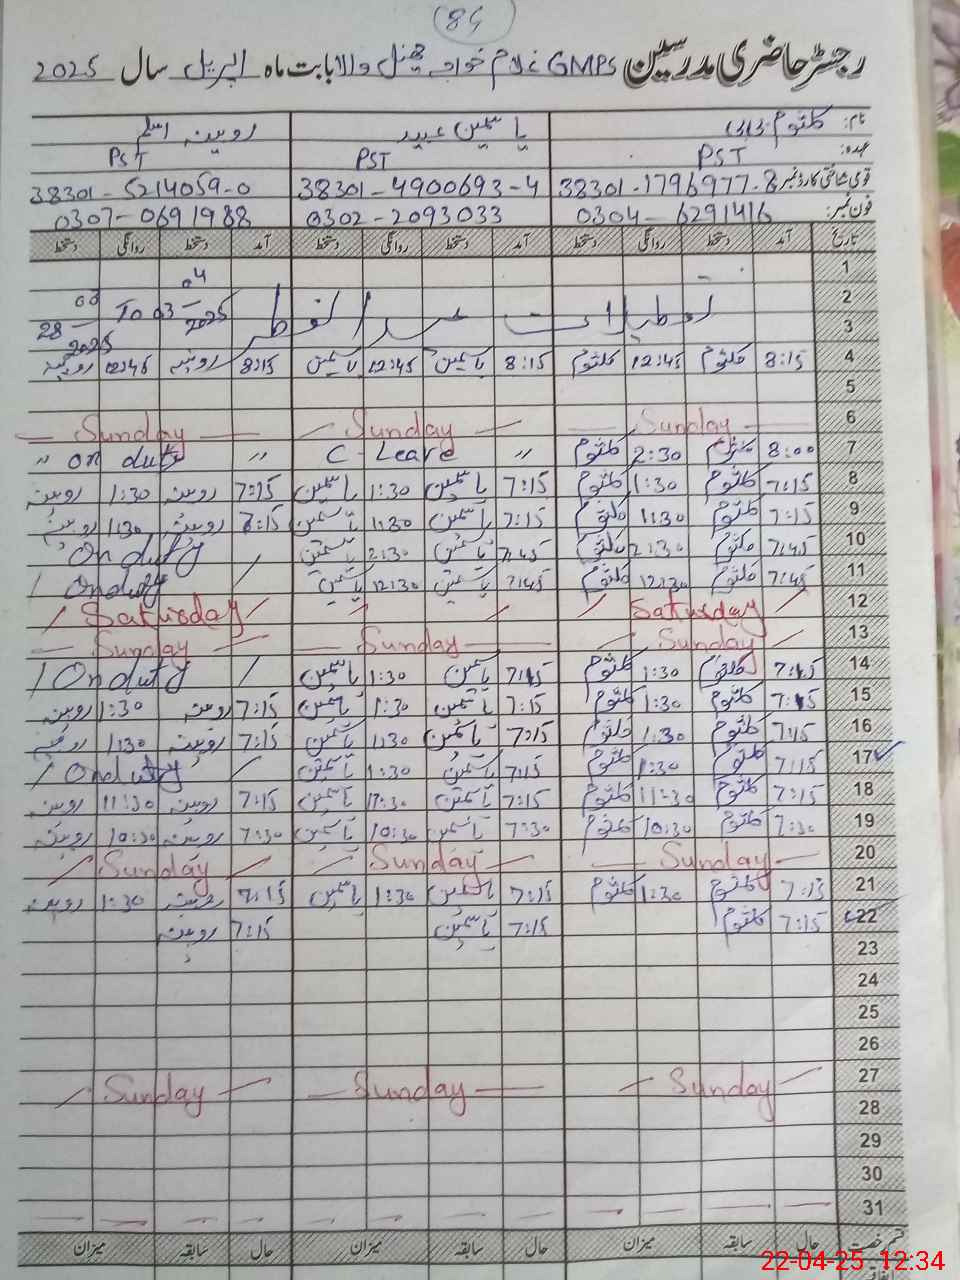 84
رجسٹر حاضری مدرسین GMPS غلام خواجہ جھنڈ والا بابت ماہ اپریل سال 2025
نام: کلثوم بی بی یاسمین عبید روبینہ اسلم
عہدہ: PST PST PST
قومی شناختی کارڈ نمبر 38301-1796977-8 38301-4900693-4 38301-5214059-0
فون نمبر: 0304-6291416 0302-2093033 0307-0691988
تاریخ آمد دستخط روانگی دستخط آمد دستخط روانگی دستخط آمد دستخط روانگی دستخط
1
2 تعطیلات عید الفطر 28-03-2025 To 03-04-2025
3
4 8:15 کلثوم 12:45 کلثوم 8:15 یاسمین 12:45 یاسمین 8:15 روبینہ 12:45 روبینہ
5
6 Sunday Sunday Sunday
7 8:00 کلثوم 2:30 کلثوم " C-Leave " on duty "
8 7:15 کلثوم 1:30 کلثوم 7:15 یاسمین 1:30 یاسمین 7:15 روبینہ 1:30 روبینہ
9 7:15 کلثوم 1:30 کلثوم 7:15 یاسمین 1:30 یاسمین 7:15 روبینہ 1:30 روبینہ
10 7:45 کلثوم 2:30 کلثوم 7:45 یاسمین 2:30 یاسمین On duty
11 7:45 کلثوم 12:30 کلثوم 7:45 یاسمین 12:30 یاسمین On duty
12 Saturday Saturday
13 Sunday Sunday Sunday
14 7:15 کلثوم 1:30 کلثوم 7:15 یاسمین 1:30 یاسمین On duty
15 7:15 کلثوم 1:30 کلثوم 7:15 یاسمین 1:30 یاسمین 7:15 روبینہ 1:30 روبینہ
16 7:15 کلثوم 1:30 کلثوم 7:15 یاسمین 1:30 یاسمین 7:15 روبینہ 1:30 روبینہ
17 7:15 کلثوم 1:30 کلثوم 7:15 یاسمین 1:30 یاسمین On duty
18 7:15 کلثوم 11:30 کلثوم 7:15 یاسمین 11:30 یاسمین 7:15 روبینہ 11:30 روبینہ
19 7:30 کلثوم 10:30 کلثوم 7:30 یاسمین 10:30 یاسمین 7:30 روبینہ 10:30 روبینہ
20 Sunday Sunday Sunday
21 7:15 کلثوم 1:30 کلثوم 7:15 یاسمین 1:30 یاسمین 7:15 روبینہ 1:30 روبینہ
22 7:15 کلثوم 7:15 یاسمین 7:15 روبینہ
23
24
25
26
27 Sunday Sunday Sunday
28
29
30
31
قسم رخصت حال سابقہ میزان حال سابقہ میزان حال سابقہ میزان
22-04-25 12:34